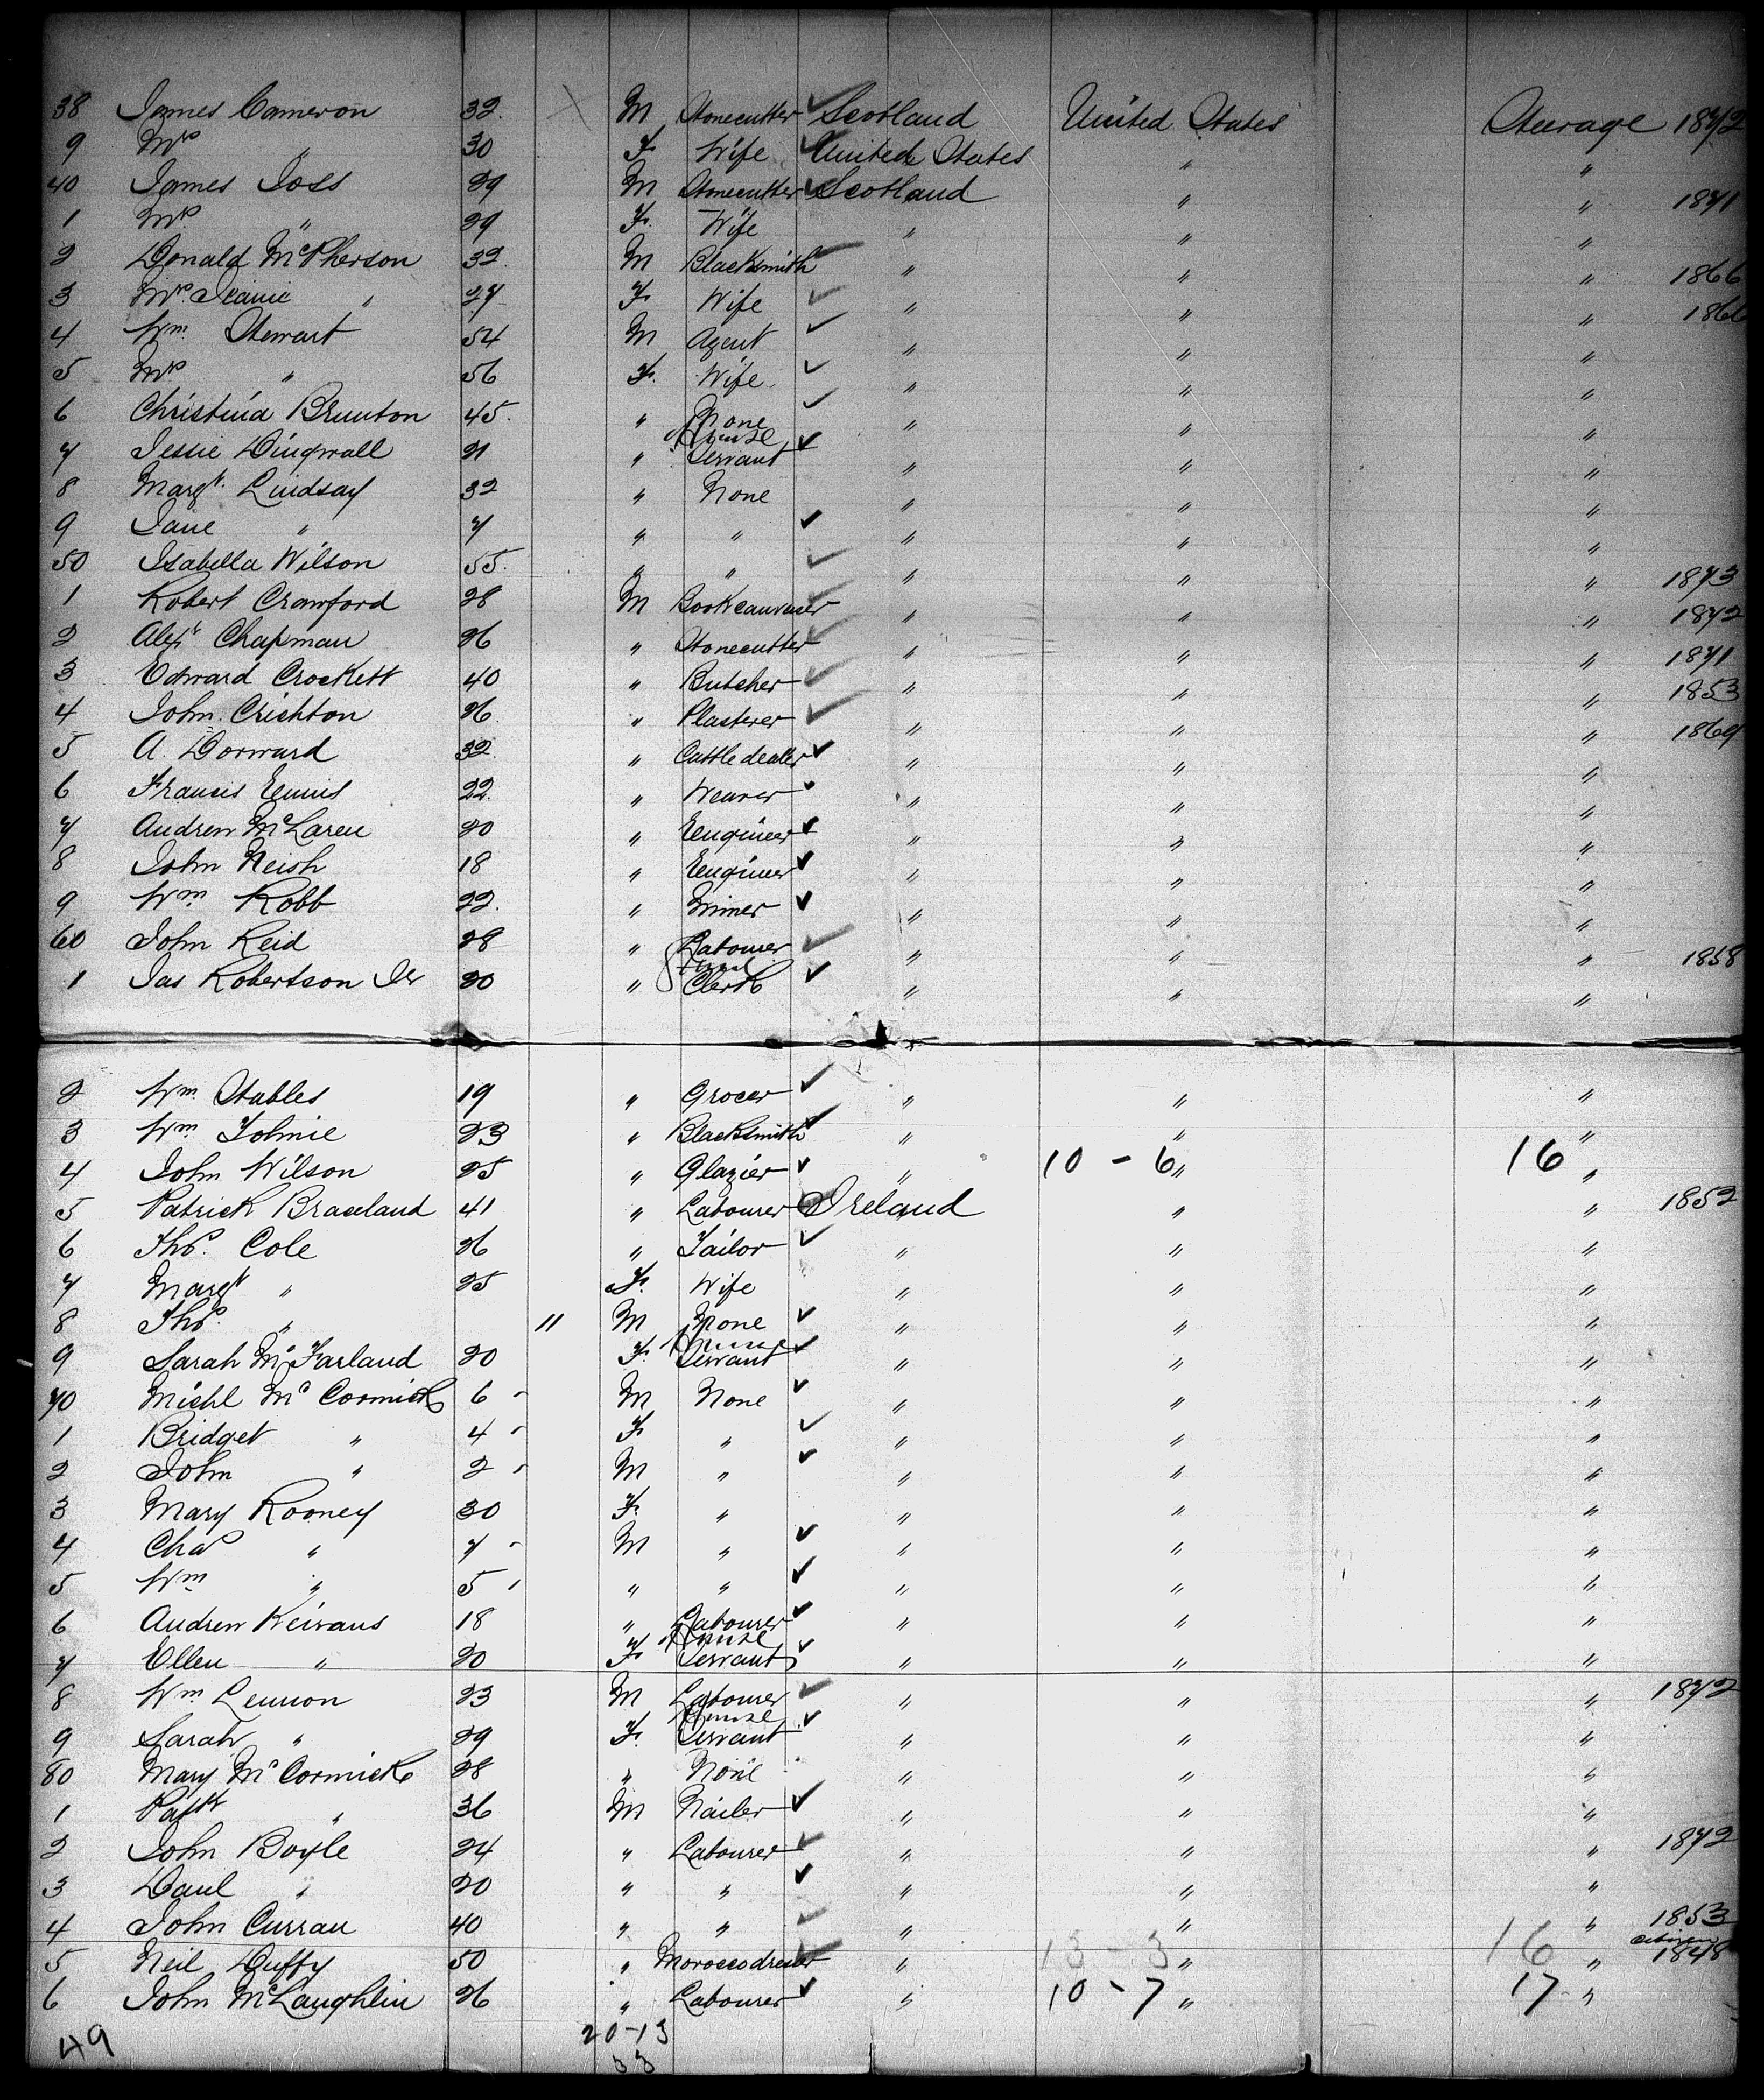 38 James Cameron 32. M Stonecutter Scotland United States Steerage 1872
9 Mrs " 30 F. Wife United States " "
40 James Joss 29 M Stonecutter Scotland " " 1871
1 Mrs " 29 F. Wife " " "
2 Donald McPherson 32. M Blacksmith " " " 1866
3 Mrs. Jeanie " 27 F. Wife " " " 1866
4 Wm. Stewart 54 M Agent " " "
5 Mrs " 56 F. Wife. " " "
6 Christina Brunton 45. " None " " "
7 Jessie Dingwall 21 " House Servant " " "
8 Margt. Lindsay 32 " None " " "
9 Jane " 7 " " " " "
50 Isabella Wilson 55. " " " " " 1873
1 Robert Crawford 28 M Bookcanvaser " " " 1872
2 Alexr Chapman 26 " Stonecutter " " " 1871
3 Edward Crockett 40 " Butcher " " " 1853
4 John Crichton 26. " Plasterer " " " 1869
5 A. Dorward 32. " Cattle dealer " " "
6 Francis Ennis 22. " Weaver " " "
7 Andrew McLaren 20 " Engineer " " "
8 John Neish 18 " Engineer " " "
9 Wm. Robb 22. " Miner " " "
60 John Reid 28 " Labourer " " " 1858
1 Jas Robertson Jr 20 " Clerk " " "
2 Wm. Stables 19 " Grocer " " "
3 Wm. Tolmie 23 " Blacksmith " " "
4 John Wilson 25 " Glazier " 10 - 6 " 16 "
5 Patrick Braceland 41 " Labourer Ireland " " 1852
6 Thos. Cole 26 " Tailor " " "
7 Margt " 25 F. Wife " " "
8 Thos. " 11 M None " " "
9 Sarah McFarland 20 F. House Servant " " "
70 Michl McCormick 6 - M None " " "
1 Bridget " 4 - F. " " " "
2 John " 2 - M " " " "
3 Mary Rooney 30 F. " " " "
4 Chas " 7 - M " " " "
5 Wm " 5 - " " " " "
6 Andrew Keivans 18 " Labourer " " "
7 Ellen " 20 F. House Servant " " "
8 Wm Lennon 23 M Labourer " " " 1872
9 Sarah " 29 F. House Servant " " "
80 Mary McCormick 28 " None " " "
1 Patk " 36 M Nailer " " "
2 John Boyle 24 " Labourer " " " 1872
3 Danl " 20 " " " " "
4 John Curran 40 " " " " " 1853
citizen
5 Neil Duffy 50 " Moroccodresser " 13 - 3 " 16 " 1848
6 John McLaughlin 26 " Labourer " 10 - 7 " 17 "
49 20-13
33